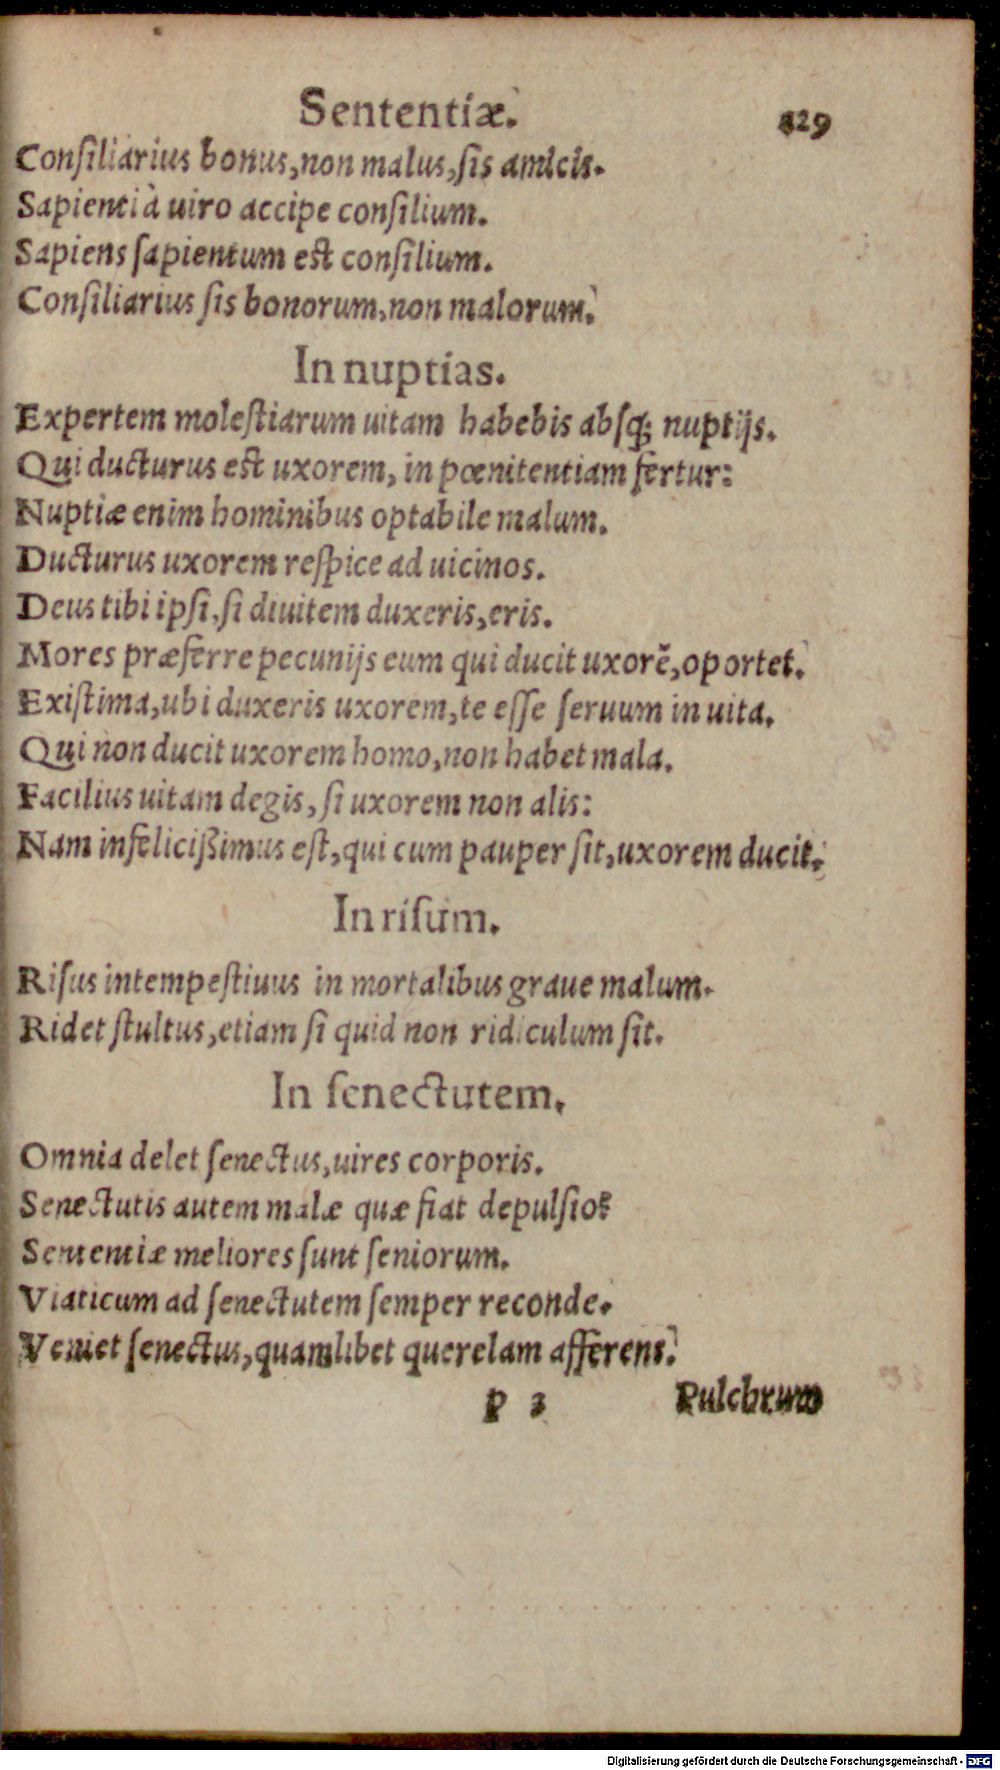 Sententiæ. 129
Conſiliarius bonus, non malus, ſis amicis.
Sapienti à uiro accipe conſilium.
Sapiens ſapientum est conſilium.
Conſiliarius ſis bonorum, non malorum.
In nuptias.
Expertem moleſtiarum uitam habebis abſq; nuptijs.
Qui ducturus est uxorem, in pœnitentiam fertur:
Nuptiæ enim hominibus optabile malum.
Ducturus uxorem reſpice ad uicinos.
Deus tibi ipſi, ſi diuitem duxeris, eris.
Mores præferre pecunijs eum qui ducit uxorẽ, oportet.
Exiſtima, ubi duxeris uxorem, te eſſe ſeruum in uita.
Qui non ducit uxorem homo, non habet mala.
Facilius uitam degis, ſi uxorem non alis:
Nam infelicißimus eſt, qui cum pauper ſit, uxorem ducit.
In riſum.
Riſus intempeſtiuus in mortalibus graue malum.
Ridet ſtultus, etiam ſi quid non ridiculum ſit.
In ſenectutem.
Omnia delet ſenectus, uires corporis.
Senectutis autem malæ quæ fiat depulſio?
Sententiæ meliores ſunt ſeniorum.
Viaticum ad ſenectutem ſemper reconde.
Veniet ſenectus, quamlibet querelam afferens.
P 3 Pulchrum
Digitalisierung gefördert durch die Deutsche Forschungsgemeinschaft - DFG